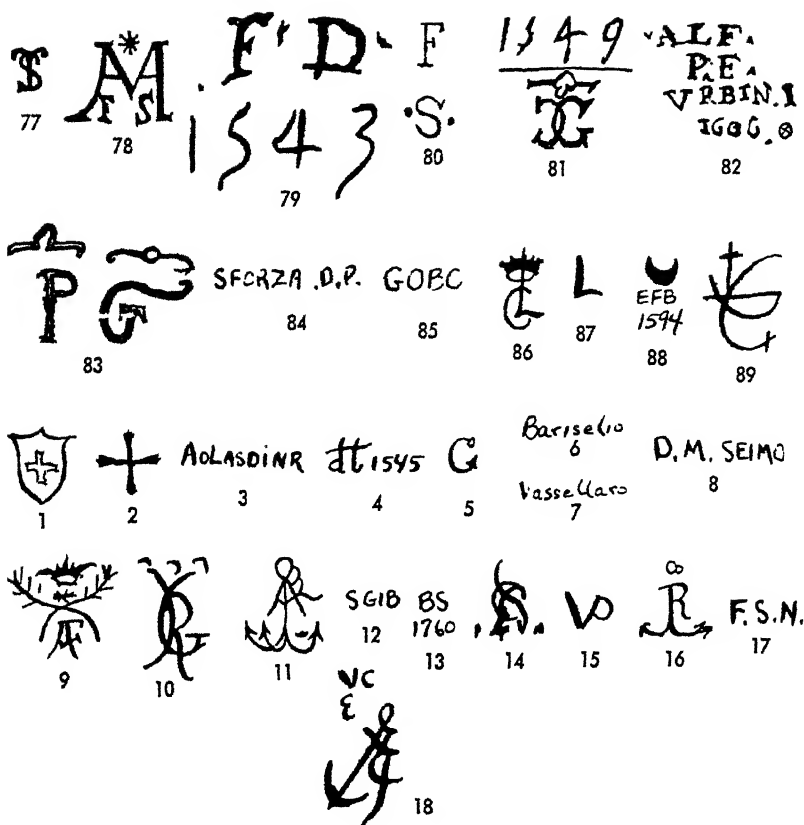 77
78
F D
1543
79
F
·S·
80
1549
81
ALF.
P.E.
VRBIN.I
82
P
83
SFORZA .D.P.
84
GOBC
85
86
L
87
EFB
1594
88
89
1
2
AOLASDINR
3
1545
4
G
5
Bariselio
6
Vassellaro
7
D.M. SEIMO
8
9
10
11
SGIB
12
BS
1760
13
14
VO
15
R
16
F.S.N.
17
VC
E
18